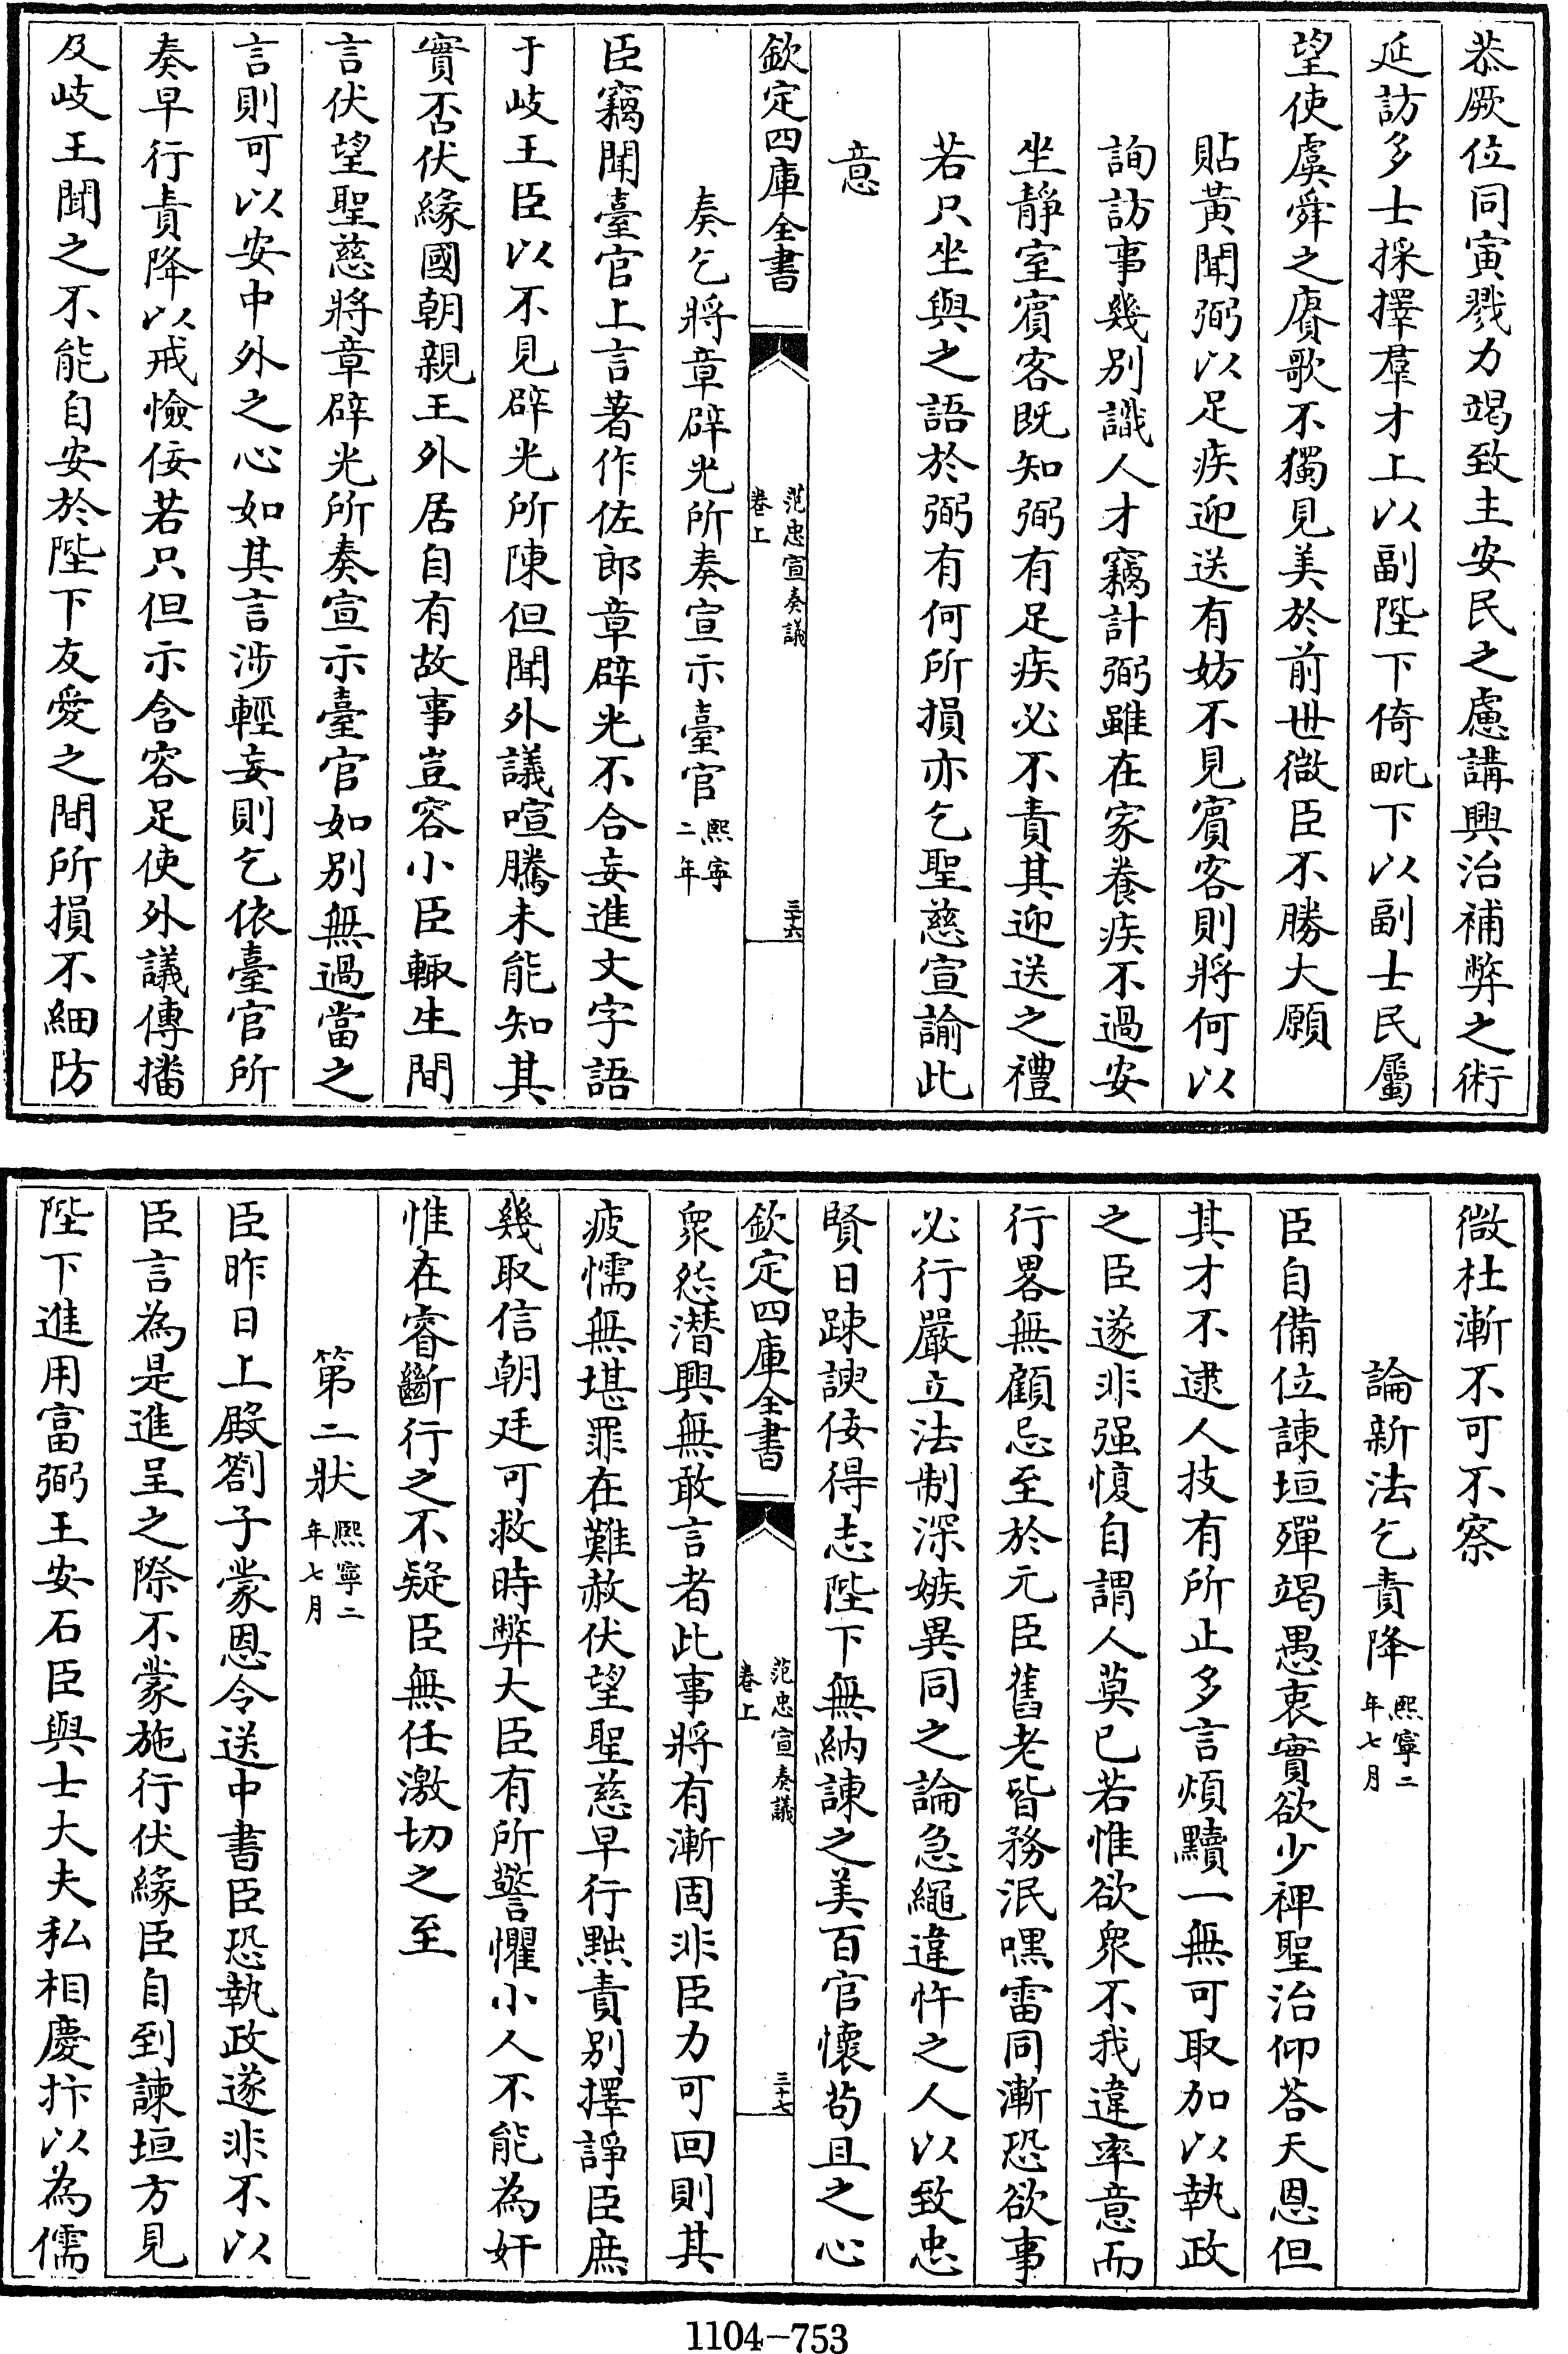 恭厥位同寅戮力竭致主安民之慮講興治補弊之術
延訪多士採擇羣才上以副陛下倚毗下以副士民屬
望使虞舜之賡歌不獨見美於前世微臣不勝大願
貼黃聞弼以足疾迎送有妨不見賓客則將何以
詢訪事幾别識人才竊計弼雖在家養疾不過安
坐靜室賓客既知弼有足疾必不責其迎送之禮
若只坐與之語於弼有何所損亦乞聖慈宣諭此
意
欽定四庫全書
范忠宣奏議
卷上
三十六
奏乞將章辟光所奏宣示臺官熙寧二年
臣竊聞臺官上言著作佐郎章辟光不合妄進文字語
于岐王臣以不見辟光所陳但聞外議喧騰未能知其
實否伏緣國朝親王外居自有故事豈容小臣輙生間
言伏望聖慈將章辟光所奏宣示臺官如别無過當之
言則可以安中外之心如其言涉輕妄則乞依臺官所
奏早行責降以戒憸佞若只但示含容足使外議傳播
及岐王聞之不能自安於陛下友愛之間所損不細防
微杜漸不可不察
論新法乞責降熙寧二年七月
臣自備位諫垣殫竭愚衷實欲少裨聖治仰荅天恩但
其才不逮人技有所止多言煩黷一無可取加以執政
之臣遂非强愎自謂人莫已若惟欲衆不我違率意而
行畧無顧忌至於元臣舊老皆務泯嘿雷同漸恐欲事
必行嚴立法制深嫉異同之論急繩違忤之人以致忠
賢日踈諛佞得志陛下無納諫之美百官懷茍且之心
欽定四庫全書
范忠宣奏議
卷上
三十七
衆怨潛興無敢言者此事將有漸固非臣力可回則其
疲懦無堪罪在難赦伏望聖慈早行黜責别擇諍臣庶
幾取信朝廷可救時弊大臣有所警懼小人不能為奸
惟在睿斷行之不疑臣無任激切之至
第二狀熙寧二年七月
臣昨日上殿劄子蒙恩令送中書臣恐執政遂非不以
臣言為是進呈之際不蒙施行伏緣臣自到諫垣方見
陛下進用富弼王安石臣與士大夫私相慶抃以為儒
1104-753